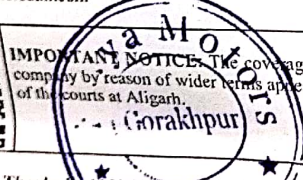 IMPORTANT NOTICE: The coverag
company by reason of wider terms appe
of the courts at Aligarh.
ya Motors
Gorakhpur